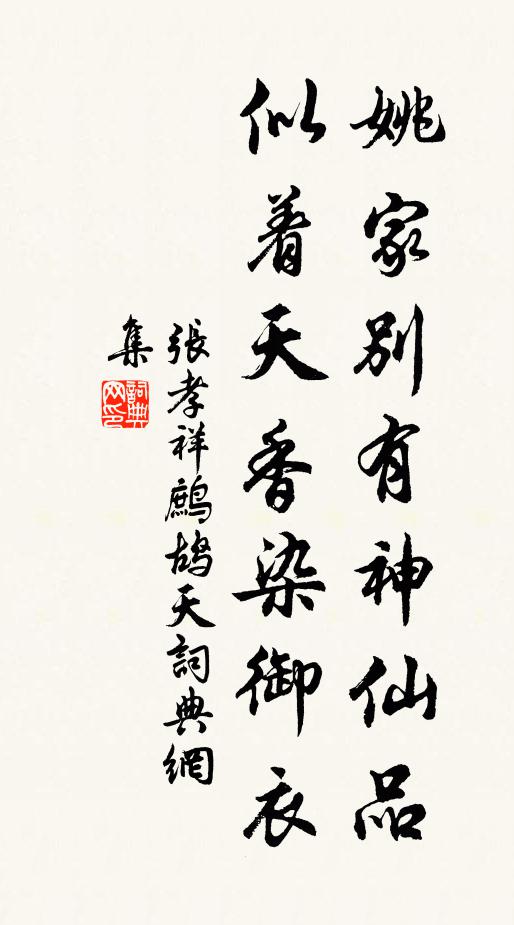 姚家別有神仙品
似着天香染御衣
張孝祥鷓鴣天詞典網
集
詞典網印